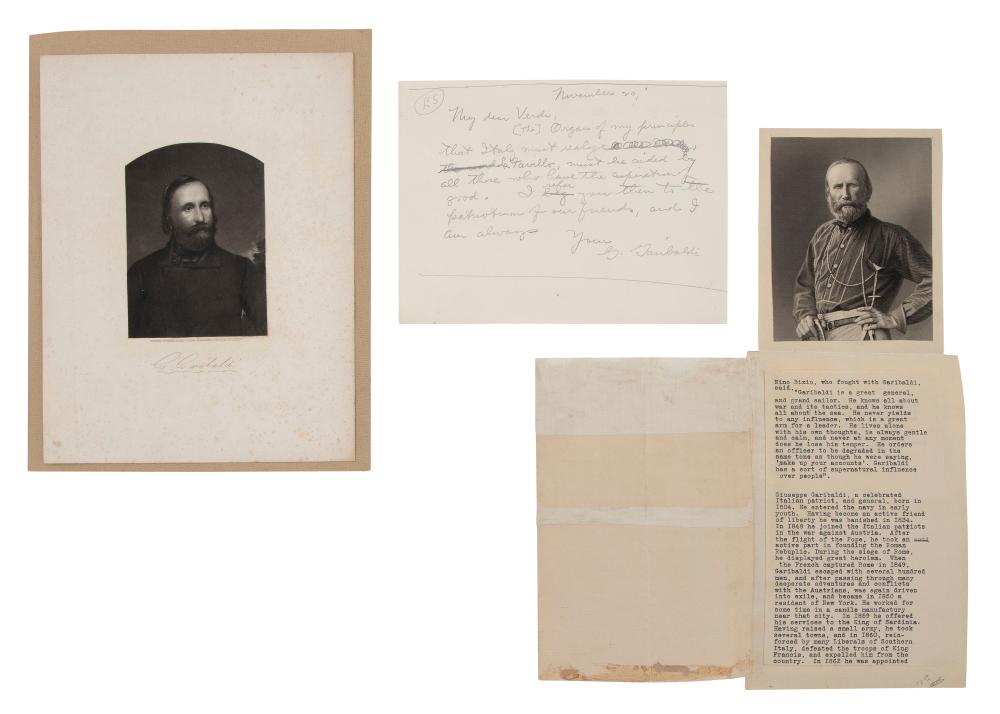 G. Garibaldi
November 20,
My dear Verdi,
[The] Organ of my principles
that Italy must realize
must be aided by
all those who have the aspiration of
good. I refer you then to the
patriotism of our friends, and I
am always
Your
G. Garibaldi
Nino Bixio, who fought with Garibaldi,
said,
"Garibaldi is a great general,
and grand sailor. He knows all about
war and its tactics, and he knows
all about the sea. He never yields
to any influence, which is a great
arm for a leader. He lives alone
with his own thoughts, is always gentle
and calm, and never at any moment
does he lose his temper. He orders
an officer to be degraded in the
same tone as though he were saying,
'make up your accounts'. Garibaldi
has a sort of supernatural influence
over people".
Giuseppe Garibaldi, a celebrated
Italian patriot, and general, born in
1804. He entered the navy in early
youth. Having become an active friend
of liberty he was banished in 1834.
In 1848 he joined the Italian patriots
in the war against Austria. After
the flight of the Pope, he took an
active part in founding the Roman
Rebuplic. During the siege of Rome,
he displayed great heroism. When
the French captured Rome in 1849,
Garibaldi escaped with several hundred
men, and after passing through many
desperate adventures and conflicts
with the Austrians, was again driven
into exile, and became in 1850 a
resident of New York. He worked for
some time in a candle manufactury
near that city. In 1859 he offered
his services to the King of Sardinia.
Having raised a small army, he took
several towns, and in 1860, rein-
forced by many Liberals of Southern
Italy, defeated the troops of King
Francis, and expelled him from the
country. In 1862 he was appointed